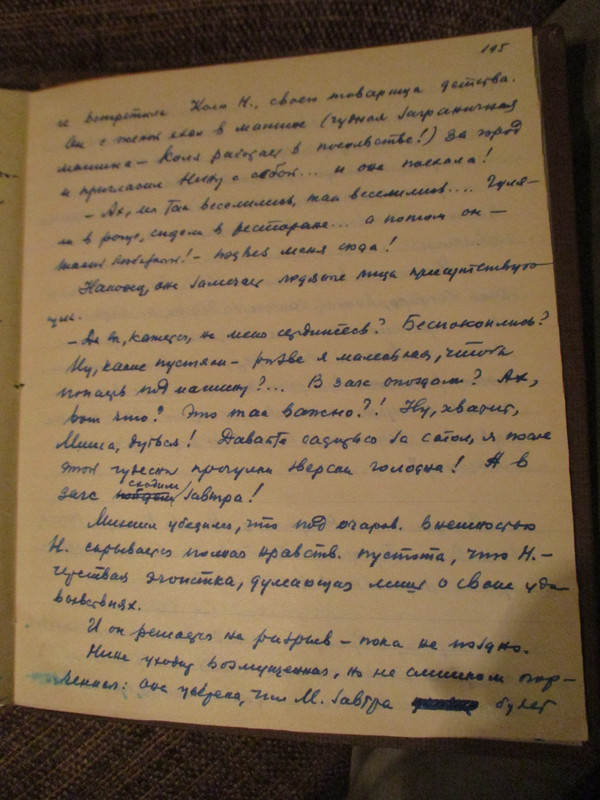 195
и встретила Колю Н., своего товарища детства.
Он с женой ехал в машине (чудная заграничная
машина – Коля работает в посольстве!) за город
и пригласил Нину с собой... и она поехала!
– Ах, мы так веселились, так веселились.... Гуля-
ли в роще, сидели в ресторане... а потом он –
– подвез меня сюда!
Наконец, она замечает лица присутствую-
щих.
– Да вы, кажется, на меня сердитесь? Беспокоились?
Ну, какие пустяки – разве я маленькая, чтобы
попасть под машину?... В загс опоздали? Ах,
вот что? Это так важно?! Ну, хватит,
Миша, дуться! Давайте садиться за стол, я после
этой чудесной прогулки зверски голодна! А в
загс сходим завтра!
Михаил убедился, что под очаров. внешностью
Н. скрывается полная нравств. пустота, что Н. –
черствая эгоистка, думающая лишь о своих удо-
вольствиях.
И он решается на разрыв – пока не поздно.
Нина уходит возмущенная, но не слишком огор-
ченная: она уверена, что М. завтра будет